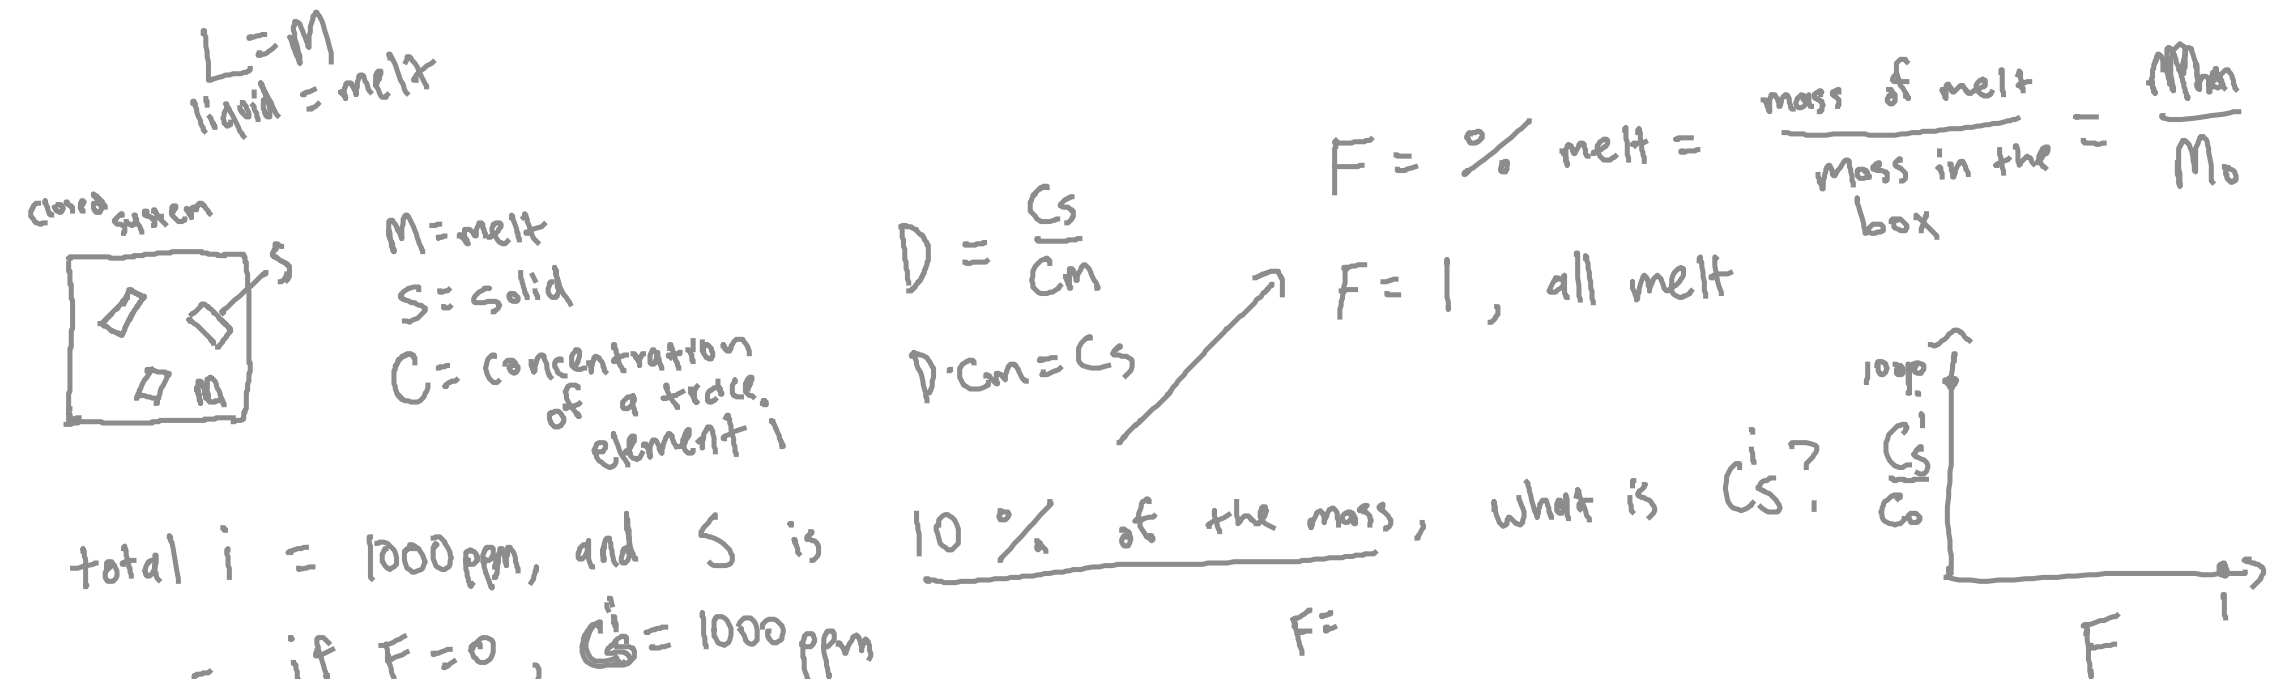 L = M
liquid = melt
closed system
S
M
M = melt
S = solid
C = concentration
of a trace
element i
D = Cs / Cm
D · Cm = Cs
F = % melt = mass of melt / mass in the box = / Mo
F = 1, all melt
total i = 1000 ppm, and S is 10% of the mass, what is Csⁱ?
F =
- if F = 0, Csⁱ = 1000 ppm
Csⁱ / Co
1
F